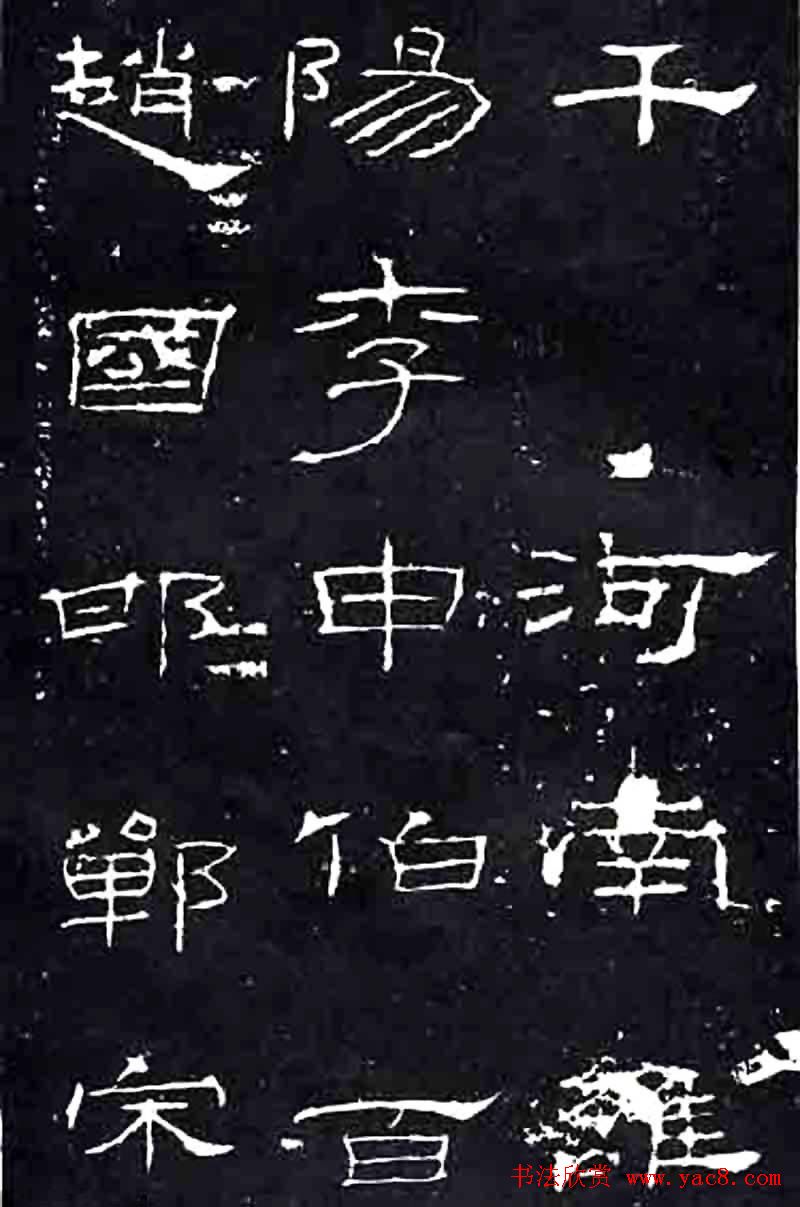 千河南雒
陽李申伯百
趙國邯鄲宋
书法欣赏 www.yac8.com